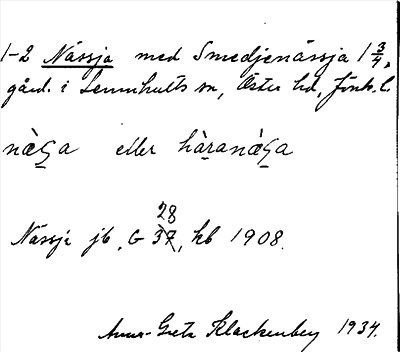 1-2 Nässja med Smedjenässja 1 3/4,
gård. i Lemnhults sn, Östra hd, Jönk. l.
nàꞔa eller hàranàꞔa
28
Nässja jb, G 37, kb 1908.
Anna-Greta Klackenberg 1934.